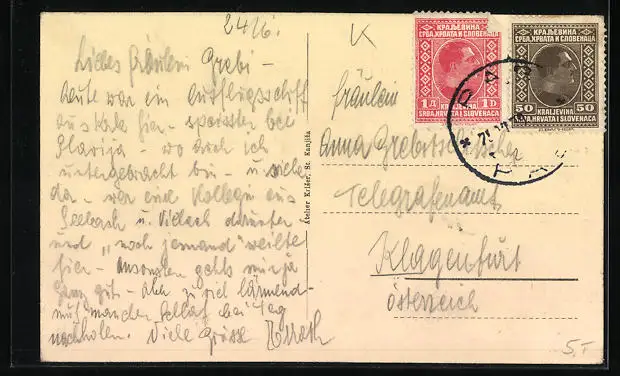 24/6.
K
Liebes Fräulein Grebi –
heute war ein Ausflugsschiff
aus hier – bei
Slavija – wo doch ich
untergebracht bin – u.
da – war eine Kollegin aus
Seebach u. Villach darunter
und „noch jemand" weilte
hier – Ansonsten gehts mir ja
ganz gut – aber zu viel lärmend –
muß manchen Schlaf bei Tag
nachholen. Viele Grüsse
Atelier Krišer, St. Kanjiža
КРАЉЕВИНА
СРБА, ХРВАТА И СЛОВЕНАЦА
1 Д KRALJEVINA 1 D
SRBA, HRVATA I SLOVENACA
КРАЉЕВИНА
СРБА, ХРВАТА И СЛОВЕНАЦА
50 KRALJEVINA 50
SRBA, HRVATA I SLOVENACA
Fräulein
Anna
Telegrafenamt
Klagenfurt
Österreich
S.T